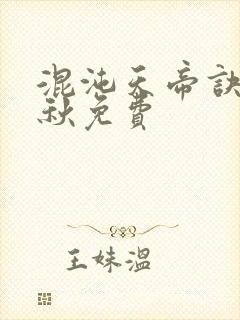 混沌天帝訣
秋免費
王妹溫